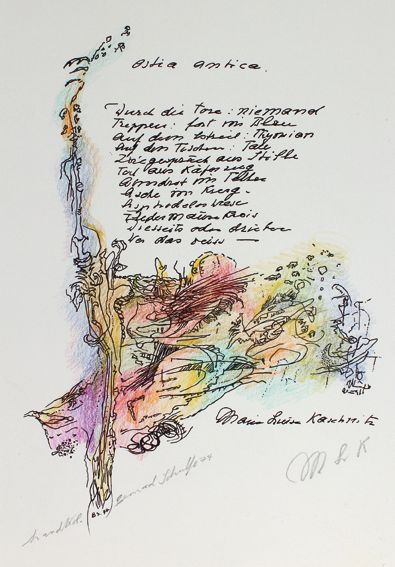 Ostia antica.
Durch die Tore: niemand
Treppen: fort ins Blau
Auf dem Estrich: Thymian
Auf den Tischen: Tau
Zwiegespräch aus Stille
Tod aus Käferzug
Abendrot im Teller
Asche im Krug.
Asphodeloswiese
Fledermäusekreis
Diesseits oder drüben
Wer das weiss —
Marie Luise Kaschnitz
MLK
Bernard Schultze 74